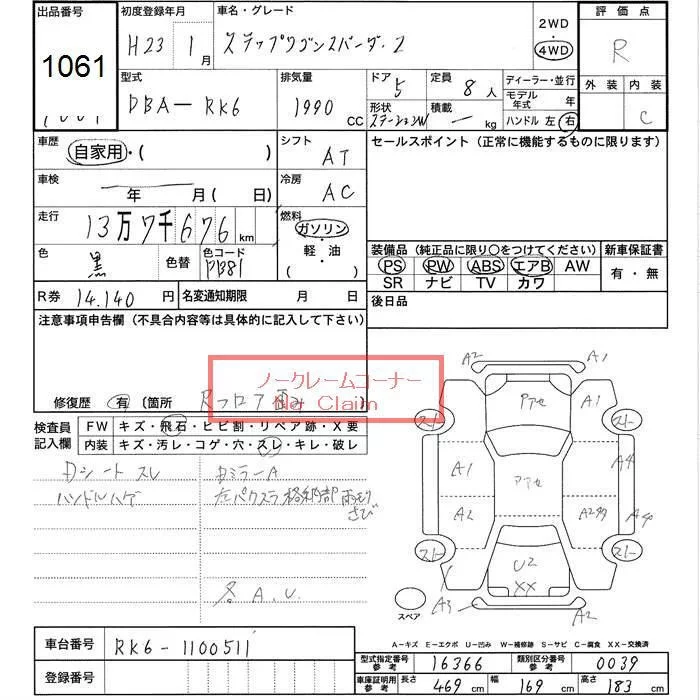 出品番号 初度登録年月 車名・グレード 2WD 4WD 評価点
1061
H23 1月 ステップワゴンスパーダ・Z R
型式 排気量 ドア 5 定員 8人 ディーラー・並行 外装 内装
DBA-RK6 1990 CC 形状 ステーションW 積載 ― kg モデル年式 年 ハンドル 左 右 C
車歴 自家用・( ) シフト AT セールスポイント(正常に機能するものに限ります)
車検 年 月( 日) 冷房 AC
走行 13万7千676km 燃料 ガソリン・軽・油 ( )
色 黒 色替 色コード 装備品(純正品に限り○をつけてください) 新車保証書
PS PW ABS エアB AW 有・無
SR ナビ TV カワ
R券 14.140円 名変通知期限 月 日 後日品
注意事項申告欄(不具合内容等は具体的に記入して下さい)
ノークレームコーナー
No Claim
修復歴 有 〔箇所 Rフロア歪み 〕
検査員記入欄 FW キズ・飛石・ヒビ割・リペア跡・X要
内装 キズ・汚レ・コゲ・穴・スレ・キレ・破レ
Dシートスレ DミラーA
ハンドルハゲ 格納部 雨もり
さび
各A.U.
A2 A1
アアセ
スト A1 スト
A1 アアセ A4
A2 A4
スト U2 スト
XX
A3 A2
スペア
A-キズ E-エクボ U-凹み W-補修跡 S-サビ C-腐食 XX-交換済
車台番号 RK6-1100511
登録番号
型式指定番号 参考 16366 類別区分番号 参考 0039
車庫証明用 参考 長さ 469cm 幅 169cm 高さ 183cm